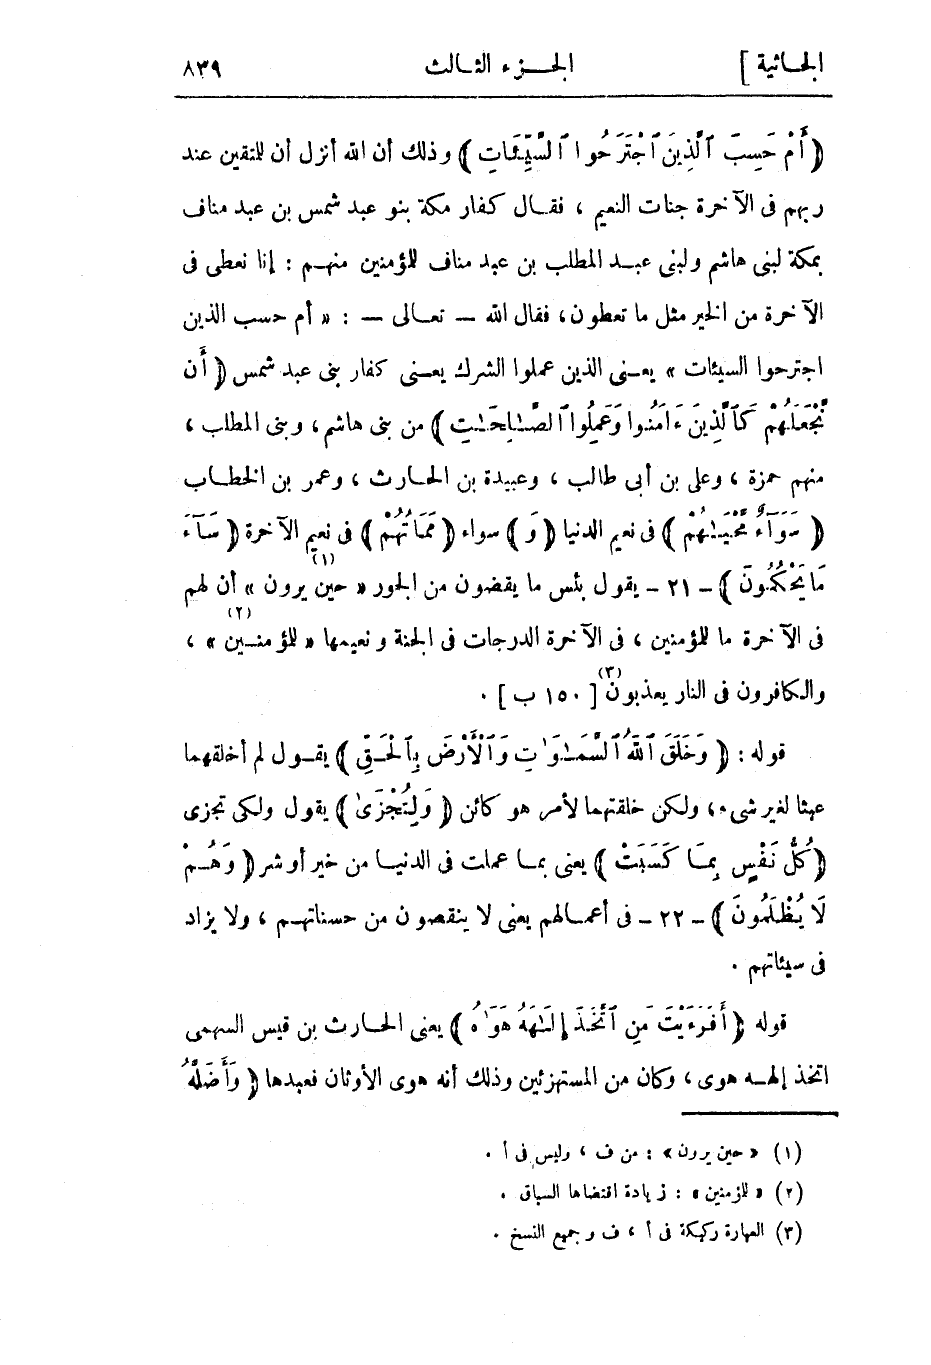 الجـاثية ]
الجــزء الثـالث
٨٣٩
﴿ أَمْ حَسِبَ ٱلَّذِينَ ٱجْتَرَحُوا ٱلسَّيِّـَٔاتِ ﴾ وذلك أن الله أنزل أن للمتقين عند
ربهم فى الآخرة جنات النعيم ، فقـال كفار مكة بنو عبد شمس بن عبد مناف
بمكة لبنى هاشم ولبنى عبـد المطلب بن عبد مناف للمؤمنين منهـم : إنا نعطى فى
الآخرة من الخير مثل ما تعطون ، فقال الله — تعـالى — : « أم حسب الذين
اجترحوا السيئات » يعـنى الذين عملوا الشرك يعـنى كفار بنى عبد شمس ﴿ أَن
نَّجْعَلَهُمْ كَٱلَّذِينَ ءَامَنُوا وَعَمِلُوا ٱلصَّـٰلِحَـٰتِ ﴾ من بنى هاشم ، وبنى المطلب ،
منهم حمزة ، وعلى بن أبى طالب ، وعبيدة بن الحـارث ، وعمر بن الخطـاب
﴿ سَوَآءً مَّحْيَـٰهُمْ ﴾ فى نعيم الدنيا ﴿ وَ ﴾ سواء ﴿ مَمَاتُهُمْ ﴾ فى نعيم الآخرة ﴿ سَآءَ
مَا يَحْكُمُونَ ﴾ - ٢١ - يقول بئس ما يقضون من الجور « حين يرون (١) » أن لهم
فى الآخرة ما للمؤمنين ، فى الآخرة الدرجات فى الجنة ونعيمها « للمؤمنـين (٢) » ،
والكافرون فى النار يعذبون (٣) [ ١٥٠ ب ] .
قوله : ﴿ وَخَلَقَ ٱللَّهُ ٱلسَّمَـٰوَٰتِ وَٱلْأَرْضَ بِٱلْحَـقِّ ﴾ يقـول لم أخلقهما
عبثا لغير شىء ، ولكن خلقتهما لأمر هو كائن ﴿ وَلِتُجْزَىٰ ﴾ يقول ولكى تجزى
﴿ كُلُّ نَفْسٍ بِمَا كَسَبَتْ ﴾ يعنى بمـا عملت فى الدنيـا من خير أو شر ﴿ وَهُـمْ
لَا يُظْلَمُونَ ﴾ - ٢٢ - فى أعمـالهم يعنى لا ينقصون من حسناتهـم ، ولا يزاد
فى سيئاتهم .
قوله ﴿ أَفَرَءَيْتَ مَنِ ٱتَّخَذَ إِلَـٰهَهُ هَوَىٰهُ ﴾ يعنى الحـارث بن قيس السهمى
اتخذ إلهـه هوى ، وكان من المستهزئين وذلك أنه هوى الأوثان فعبدها ﴿ وَأَضَلَّهُ
(١) « حين يرون » : من ف ، وليس فى أ .
(٢) « للمؤمنين » : زيادة اقتضاها السياق .
(٣) العبارة ركيكة فى أ ، ف وجميع النسخ .